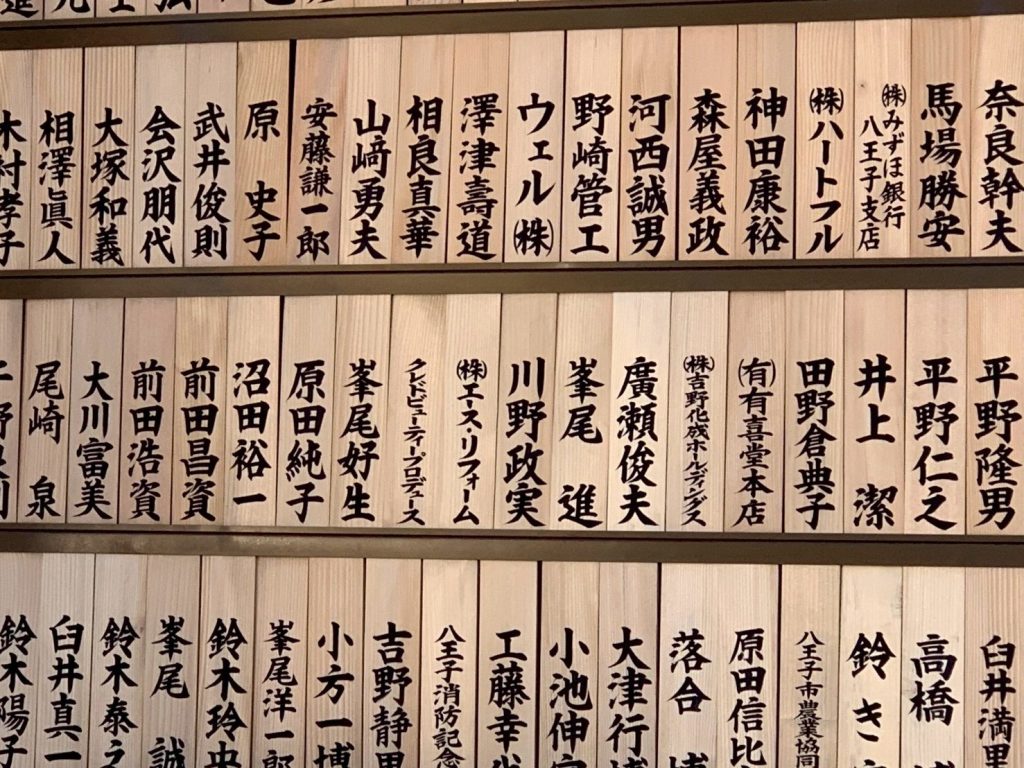 奈良幹夫
馬場勝安
㈱みずほ銀行
八王子支店
㈱ハートフル
神田康裕
森屋義政
河西誠男
野崎管工
ウェル㈱
澤津壽道
相良真華
山﨑勇夫
安藤謙一郎
原 史子
武井俊則
会沢朋代
大塚和義
相澤眞人
木村孝子
平野隆男
平野仁之
井上 潔
田野倉典子
㈲有喜堂本店
㈱吉野化成ホールディングス
廣瀬俊夫
峯尾 進
川野政実
㈱エース・リフォーム
クレドビューティープロデュース
峯尾好生
原田純子
沼田裕一
前田昌資
前田浩資
大川富美
尾崎 泉
臼井満里
高橋
鈴き
八王子市農業協同
原田信比
落合 博
大津行博
小池伸
工藤幸
八王子消防記念
吉野静男
小方一博
峯尾洋一郎
鈴木玲央
峯尾 誠
鈴木泰之
臼井真一
鈴木陽子